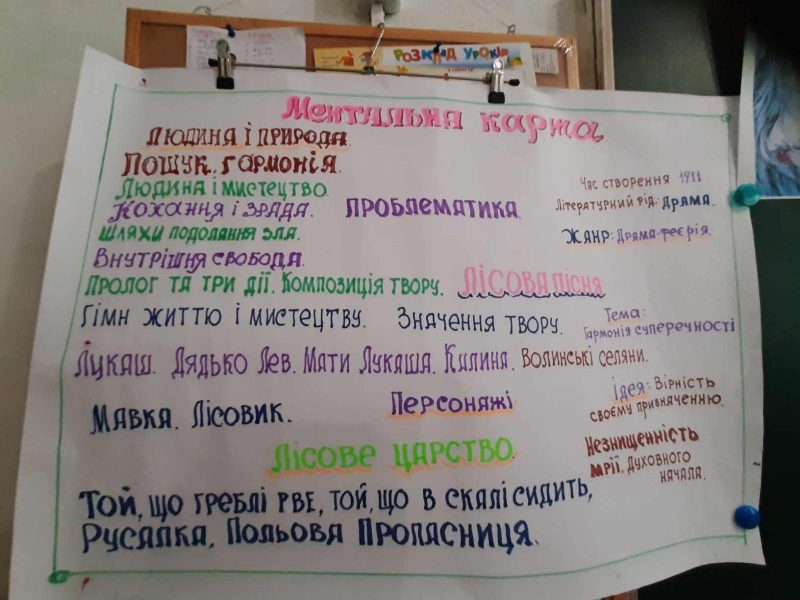 РОЗКЛАД УРОКІВ
Ментальна карта
Людина і природа.
Пошук. гармонія.
Людина і мистецтво.
Кохання і зрада.
Проблематика.
Шляхи подолання зла.
Внутрішня свобода.
Час створення 1911
Літературний рід: драма.
Жанр: Драма-феєрія.
Пролог та три дії. Композиція твору.
Лісова пісня
Гімн життю і мистецтву. Значення твору.
Тема:
Гармонія суперечності
Лукаш. Дядько Лев. Мати Лукаша. Килина. Волинські селяни.
Мавка. Лісовик.
Персонажі
Ідея: Вірність
своєму призначенню.
Незнищенність
мрії, духовного
начала.
Лісове царство.
Той, що греблі рве, той, що в скалі сидить,
Русалка, Польова Пропасниця.